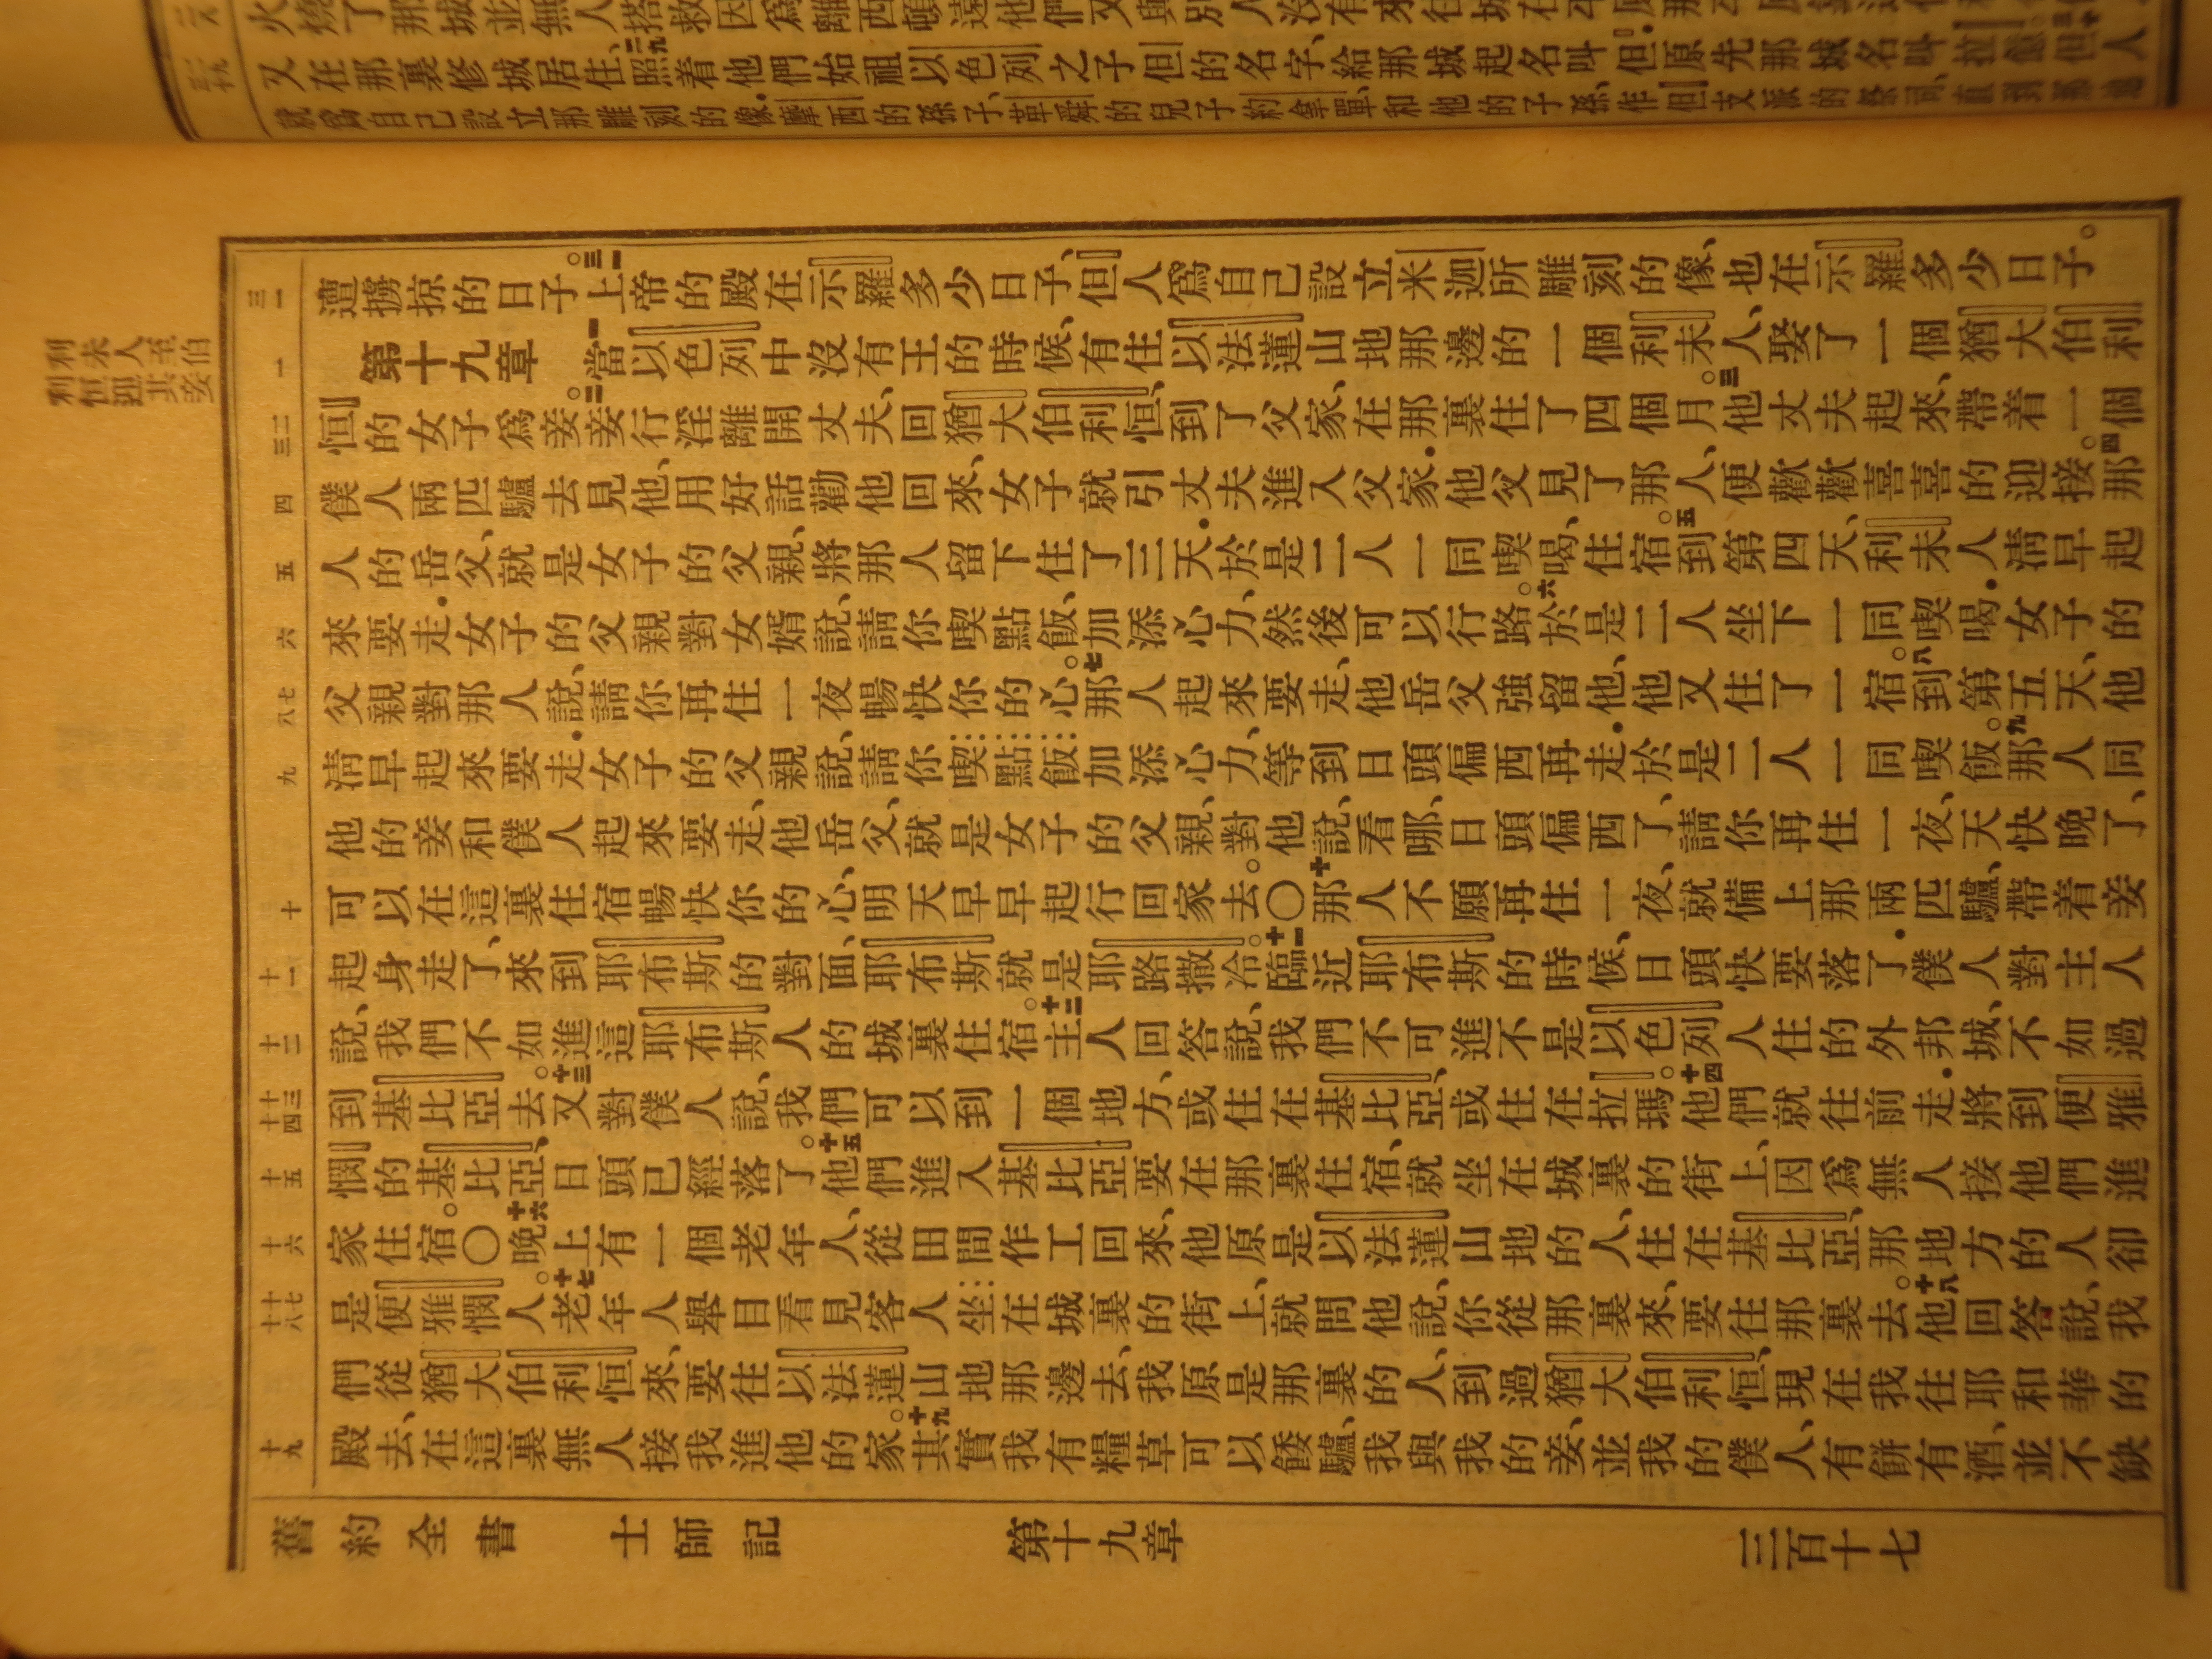 又在那裏修城居住二九照着他們始祖以色列之子但的名字、給那城起名叫但•原先那城名叫拉億
遭擄掠的日子。三一上帝的殿在示羅多少日子、但人爲自己設立米迦所雕刻的像、也在示羅多少日子。
第十九章 一當以色列中沒有王的時候、有住以法蓮山地那邊的一個利未人、娶了一個猶大伯利
恒的女子爲妾。二妾行淫離開丈夫、回猶大伯利恒、到了父家、在那裏住了四個月。三他丈夫起來、帶着一個
僕人兩匹驢去見他、用好話勸他回來、女子就引丈夫進入父家•他父見了那人、便歡歡喜喜的迎接。四那
人的岳父、就是女子的父親、將那人留下住了三天•於是二人一同喫喝、住宿。五到第四天、利未人淸早起
來要走•女子的父親對女婿說、請你喫點飯、加添心力、然後可以行路。六於是二人坐下一同喫喝•女子的
父親對那人說、請你再住一夜暢快你的心。七那人起來要走、他岳父強留他、他又住了一宿。八到第五天、他
淸早起來要走•女子的父親說、請你喫點飯加添心力、等到日頭偏西再走•於是二人一同喫飯。九那人同
他的妾和僕人起來要走、他岳父、就是女子的父親、對他說、看哪、日頭偏西了、請你再住一夜、天快晚了、
可以在這裏住宿暢快你的心、明天早早起行回家去。〇十那人不願再住一夜、就備上那兩匹驢、帶着妾
起身走了、來到耶布斯的對面、耶布斯就是耶路撒冷。十一臨近耶布斯的時候、日頭快要落了•僕人對主人
說、我們不如進這耶布斯人的城裏住宿。十二主人回答說、我們不可進不是以色列人住的外邦城、不如過
到基比亞去。十三又對僕人說、我們可以到一個地方、或住在基比亞、或住在拉瑪。十四他們就往前走•將到便雅
憫的基比亞、日頭已經落了。十五他們進入基比亞要在那裏住宿、就坐在城裏的街上、因爲無人接他們進
家住宿。〇十六晚上有一個老年人、從田間作工回來、他原是以法蓮山地的人、住在基比亞、那地方的人卻
是便雅憫人。十七老年人舉目看見客人坐在城裏的街上、就問他說、你從那裏來、要往那裏去。十八他回答說、我
們從猶大伯利恒來、要往以法蓮山地那邊去、我原是那裏的人、到過猶大伯利恒、現在我往耶和華的
殿去、在這裏無人接我進他的家。十九其實我有糧草可以餧驢、我與我的妾、並我的僕人、有餅有酒、並不缺
三一
一
二三
四
五
六
七八
九
十
十一
十二
十三十四
十五
十六
十七十八
十九
利未人至伯
利恒迎其妾
舊約全書 士師記 第十九章 三百十七